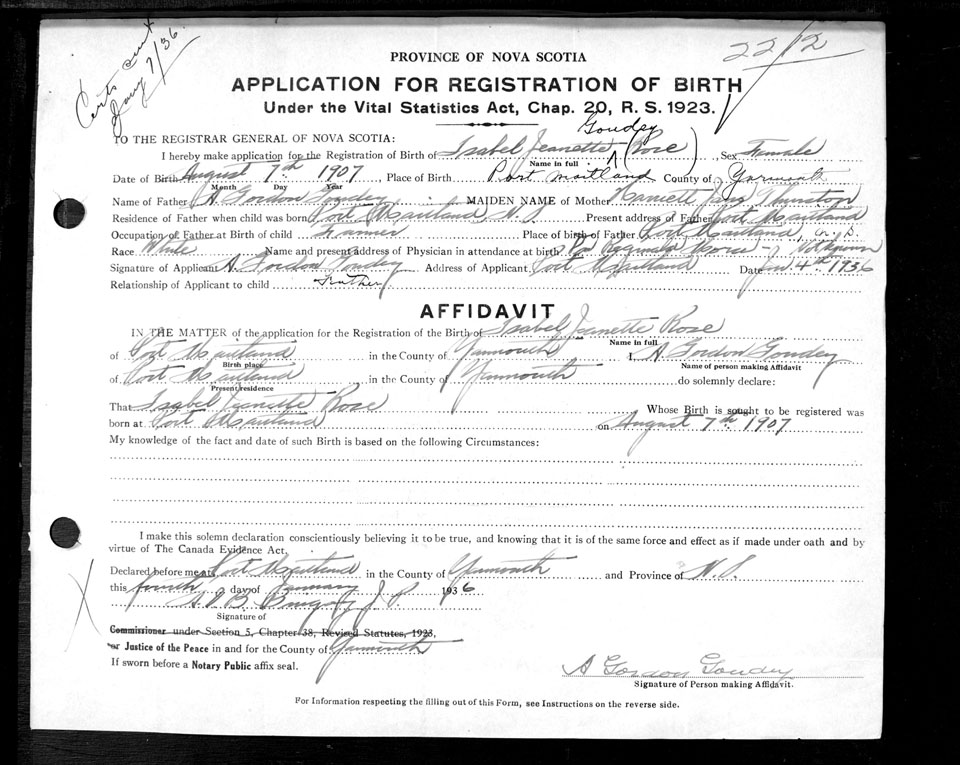 Certs sent
Jany 7/36.
2212
PROVINCE OF NOVA SCOTIA
APPLICATION FOR REGISTRATION OF BIRTH
Under the Vital Statistics Act, Chap. 20, R. S. 1923.
TO THE REGISTRAR GENERAL OF NOVA SCOTIA:
Goudey
I hereby make application for the Registration of Birth of Isabel Jeanette (Rose), Sex Female
Name in full
Date of Birth August 7th 1907 Place of Birth Port Maitland County of Yarmouth
Month Day Year
Name of Father A Gordon Goudey MAIDEN NAME of Mother Harriett Thurston
Residence of Father when child was born Port Maitland N.S Present address of Father Port Maitland
Occupation of Father at Birth of child Farmer Place of birth of Father Port Maitland, N.S.
Race White Name and present address of Physician in attendance at birth?
Signature of Applicant A. Gordon Goudey Address of Applicant Port Maitland Date Jan 4th 1936
Relationship of Applicant to child Father
AFFIDAVIT
IN THE MATTER of the application for the Registration of the Birth of Isabel Jeanette Rose
Name in full
of Port Maitland in the County of Yarmouth I, A Gordon Goudey
Birth place Name of person making Affidavit
of Port Maitland in the County of Yarmouth do solemnly declare:
Present residence
That Isabel Jeanette Rose Whose Birth is sought to be registered was
born at Port Maitland on August 7th 1907
My knowledge of the fact and date of such Birth is based on the following Circumstances:
I make this solemn declaration conscientiously believing it to be true, and knowing that it is of the same force and effect as if made under oath and by
virtue of The Canada Evidence Act.
Declared before me at Port Maitland in the County of Yarmouth and Province of N.S.
this fourth day of January 1936
J. P.
Signature of
Commissioner under Section 5, Chapter 38, Revised Statutes, 1923,
or Justice of the Peace in and for the County of Yarmouth
If sworn before a Notary Public affix seal.
A Gordon Goudey
Signature of Person making Affidavit.
For Information respecting the filling out of this Form, see Instructions on the reverse side.